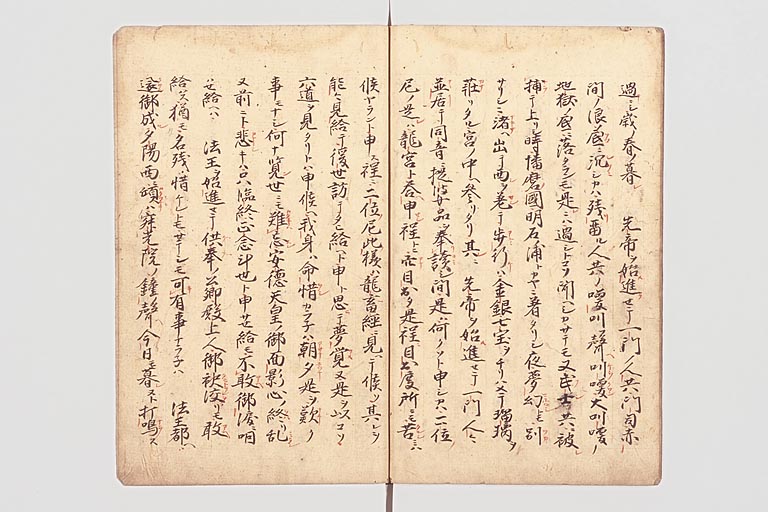 過シ歳ノ春ノ暮 先帝ヲ始進セテ一門ノ人共門司赤
間ノ浪底ニ沉シカハ残留ル人共ノ喚叫聲叫喚大叫喚ノ
地獄ノ底ニ落タランモ是ニハ過シトコソ聞ヘシカサテモ又武士共ニ被
捕テ上リ時播磨國明石浦トカヤニ着タリシ夜夢幻トモ別
サリシニ渚ニ出テ西ヲ差テ歩行ハ金銀七宝ヲチリハメテ瑠璃ヲ
荘リタル宮ノ中ヘ参リタリ其ニ 先帝ヲ始進セテ一門ノ人々
並居テ同音ニ提婆品ヲ奉読シ間是ハ何クソト申シカハ二位
尼ノ是ハ龍宮ト答申程ニ穴目出タ是程目出度所ニモ苦ニハ
候ヤラント申ス程ニ二位尼此様ハ龍畜經ニ見ヘテ候ソ其レヲ
能々見給テ後世訪テタヒ給ヘト申ト思テ夢覚又是ヲ以コソ
六道ヲ見タリトハ申候ヘ我身ハ命惜カラネハ朝夕是ヲ歎ク
事モナシ何ナラン世ニモ難忘安德天皇ノ御面影心ノ終リ乱
又前ニト悲キハ只臨終正念斗也ト申サセ給モ不敢御涙ニ咽
セ給ヘハ 法王ヲ始進セテ供奉ノ公卿殿上人御袂絞リモ敢
給ハス猶モ名残ハ惜ケレトモサテシモ可有事ナラネハ 法王都ヘ
還御成夕陽西傾ハ寂光院ノ鐘聲今日モ暮ヌト打鳴ス